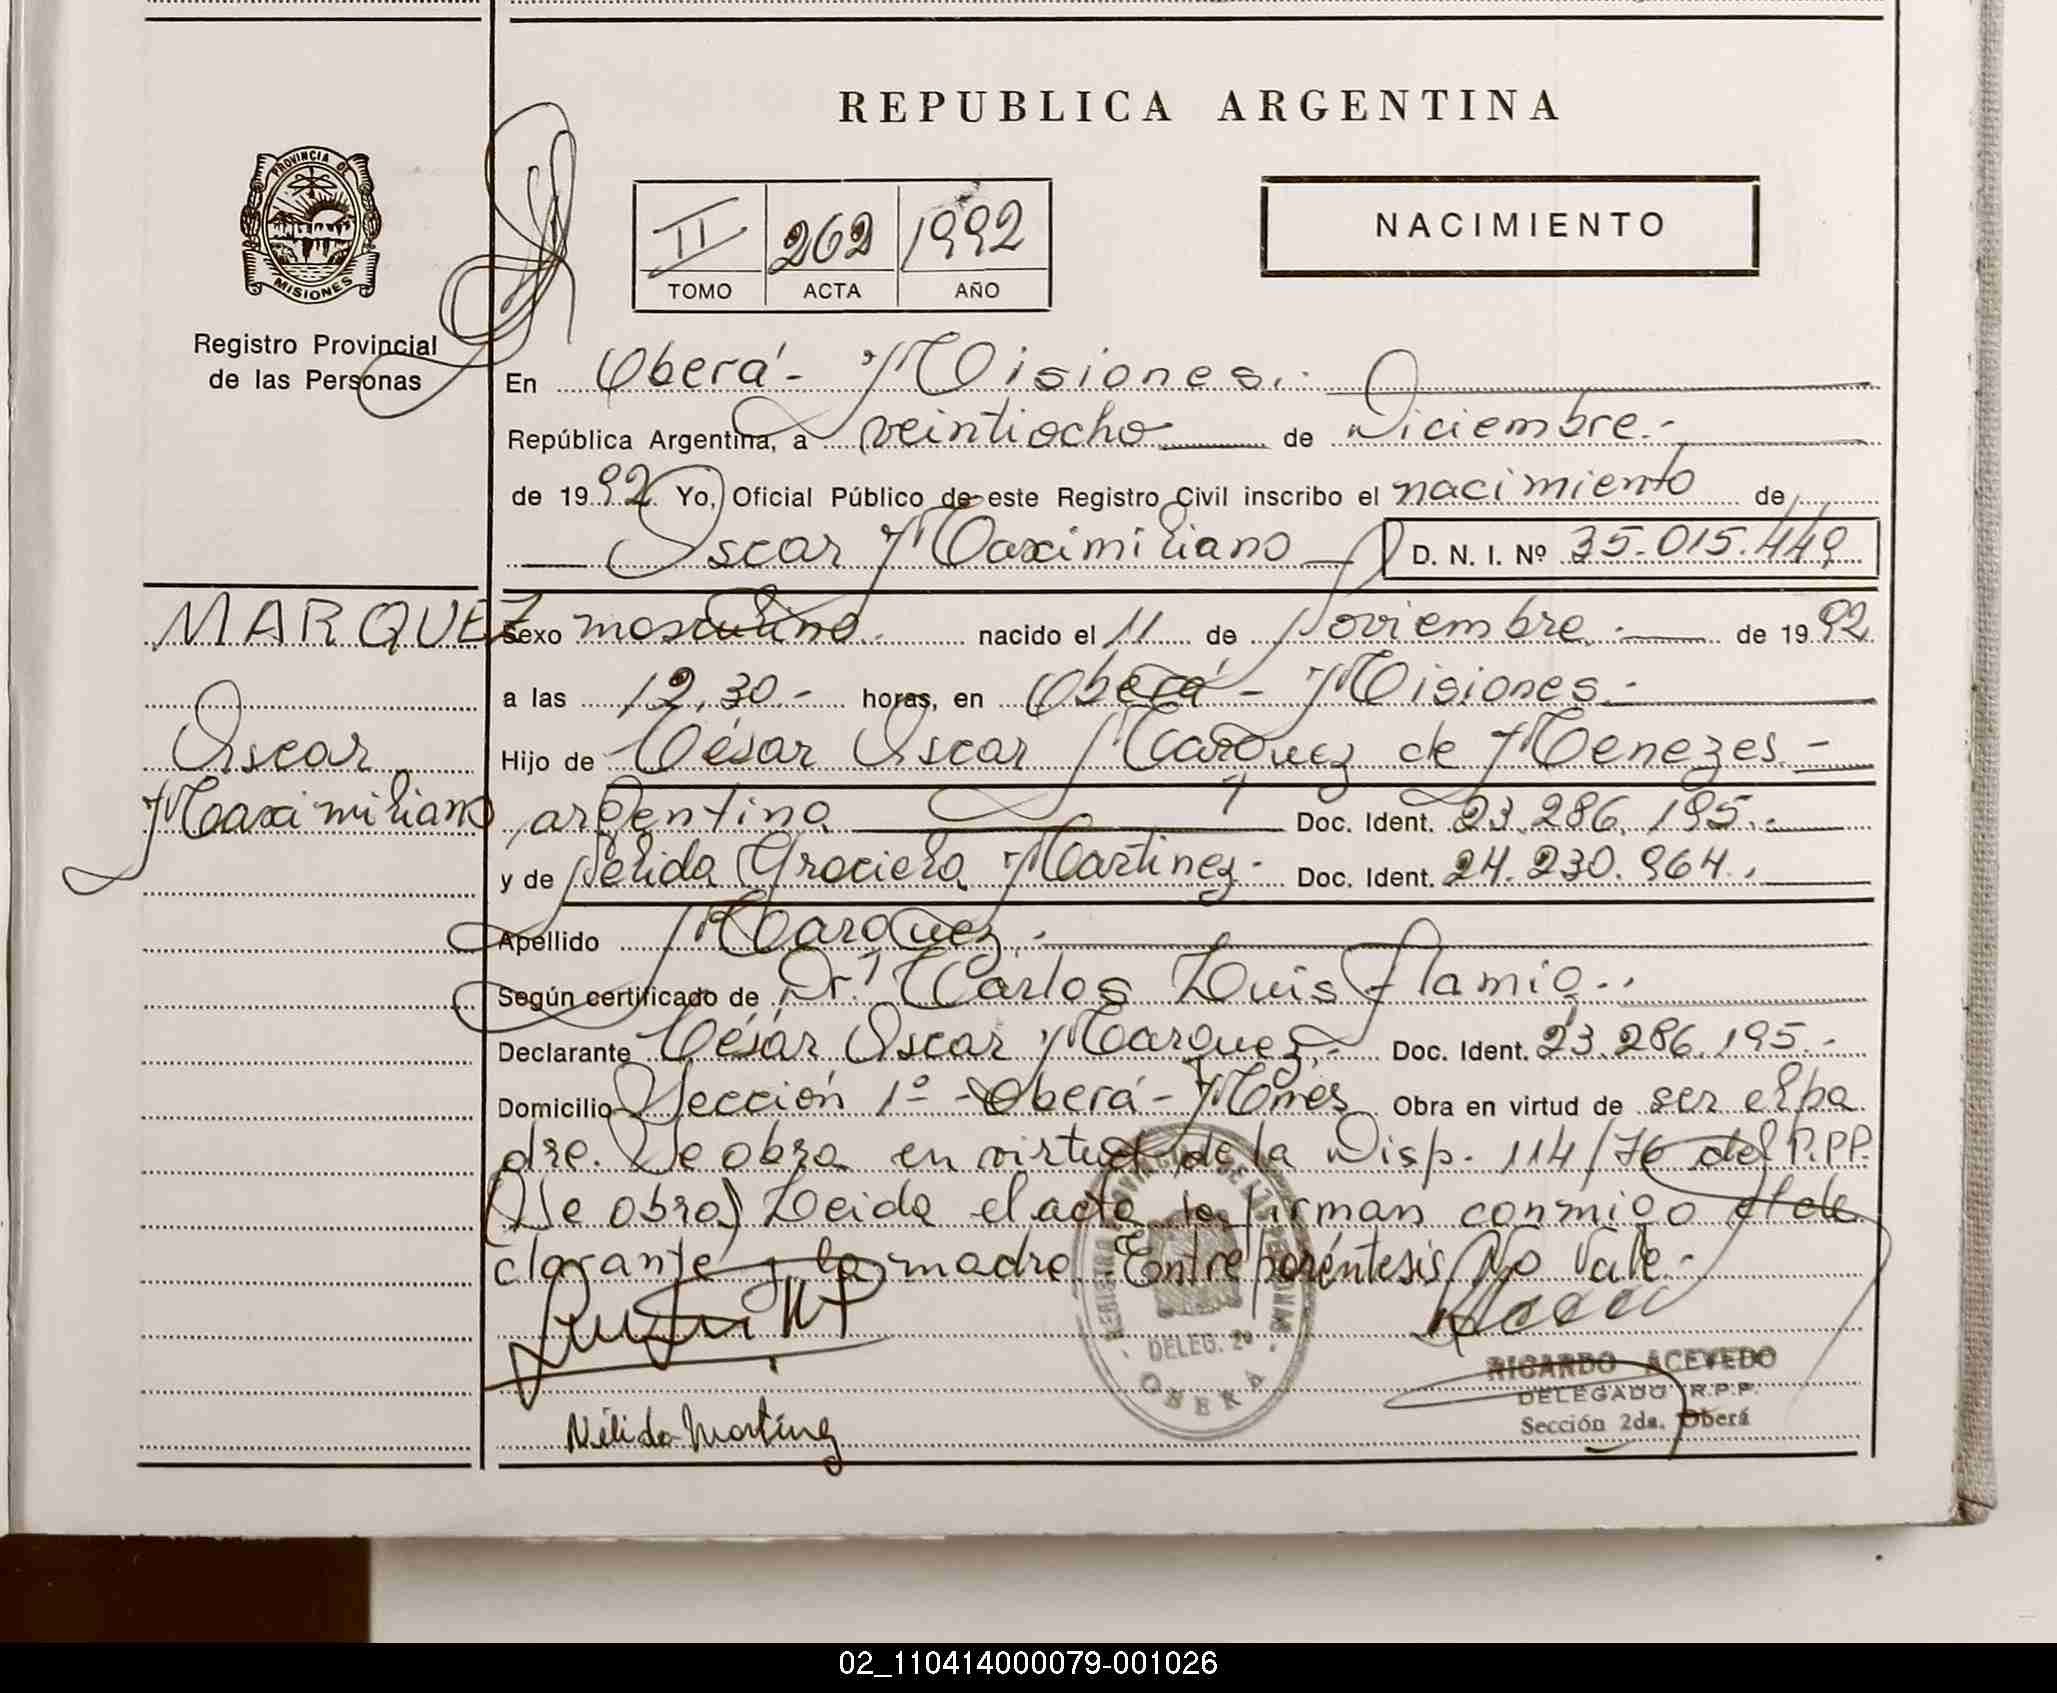 REPUBLICA ARGENTINA
PROVINCIA DE
MISIONES
Registro Provincial
de las Personas
II 262 1992
TOMO ACTA AÑO
NACIMIENTO
En Oberá - Misiones.-
República Argentina, a veintiocho de Diciembre.-
de 1992 Yo, Oficial Público de este Registro Civil inscribo el nacimiento de
Oscar Maximiliano D. N. I. Nº 35.015.449
MARQUEZ
Oscar
Maximiliano
Sexo masculino. nacido el 11 de Noviembre.- de 1992
a las 12,30.- horas, en Oberá - Misiones.-
Hijo de César Oscar Marquez de Menezes -
argentina Doc. Ident. 23.286.195.-
y de Nelida Graciela Martinez.- Doc. Ident. 24.230.964.-
Apellido Marquez.-
Según certificado de Dr. Carlos Luis Flamig.-
Declarante César Oscar Marquez.- Doc. Ident. 23.286.195.-
Domicilio Sección 1º - Oberá - Mnes Obra en virtud de ser el pa
dre. Se obra en virtud de la Disp. 114/76 del P.PP.
(Se obra) Leida el acta la firman conmigo el de
clarante y la madre. Entre paréntesis No Vale.-
DELEG. 2ª
OBERA
RICARDO ACEVEDO
DELEGADO R.P.P.
Sección 2da. Oberá
Nélida Martinez
02_110414000079-001026